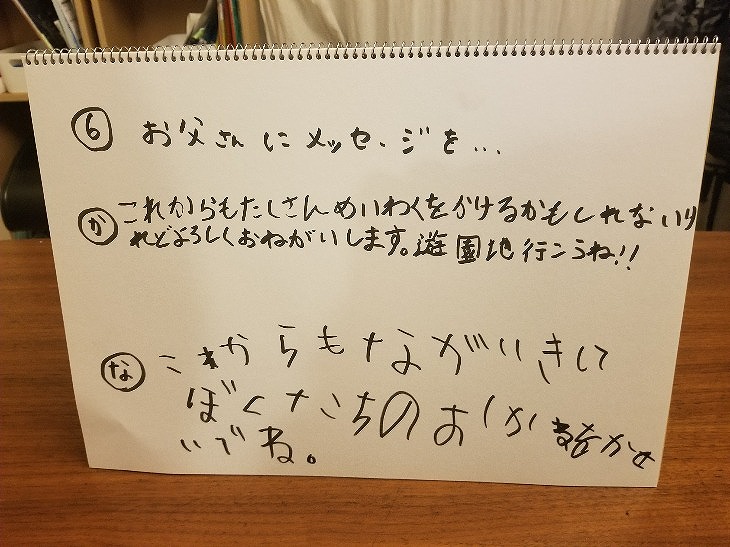 ⑥ お父さんにメッセージを...
か これからもたくさんめいわくをかけるかもしれないけ
れどよろしくおねがいします。遊園地行こうね!!
な これからもながいきして
ぼくたちのお かせ
いでね。